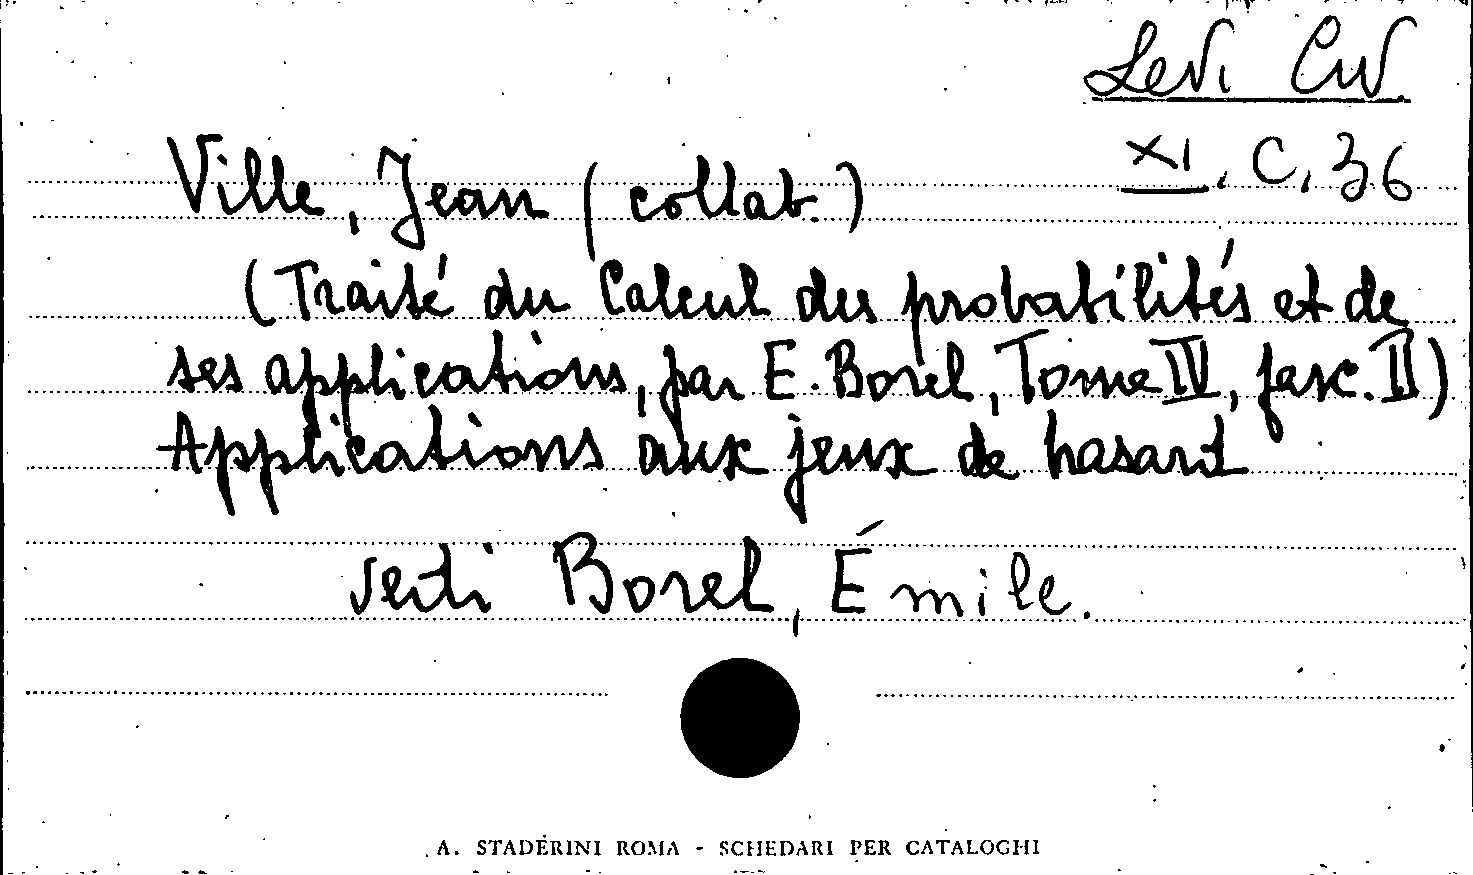 Levi Civ.
XI, C, 36
Ville, Jean (collab.)
(Traité du Calcul des probabilités et de
ses applications, par E. Borel, Tome IV, fasc. II)
Applications aux jeux de hasard
Borel, Émile.
A. STADERINI ROMA - SCHEDARI PER CATALOGHI